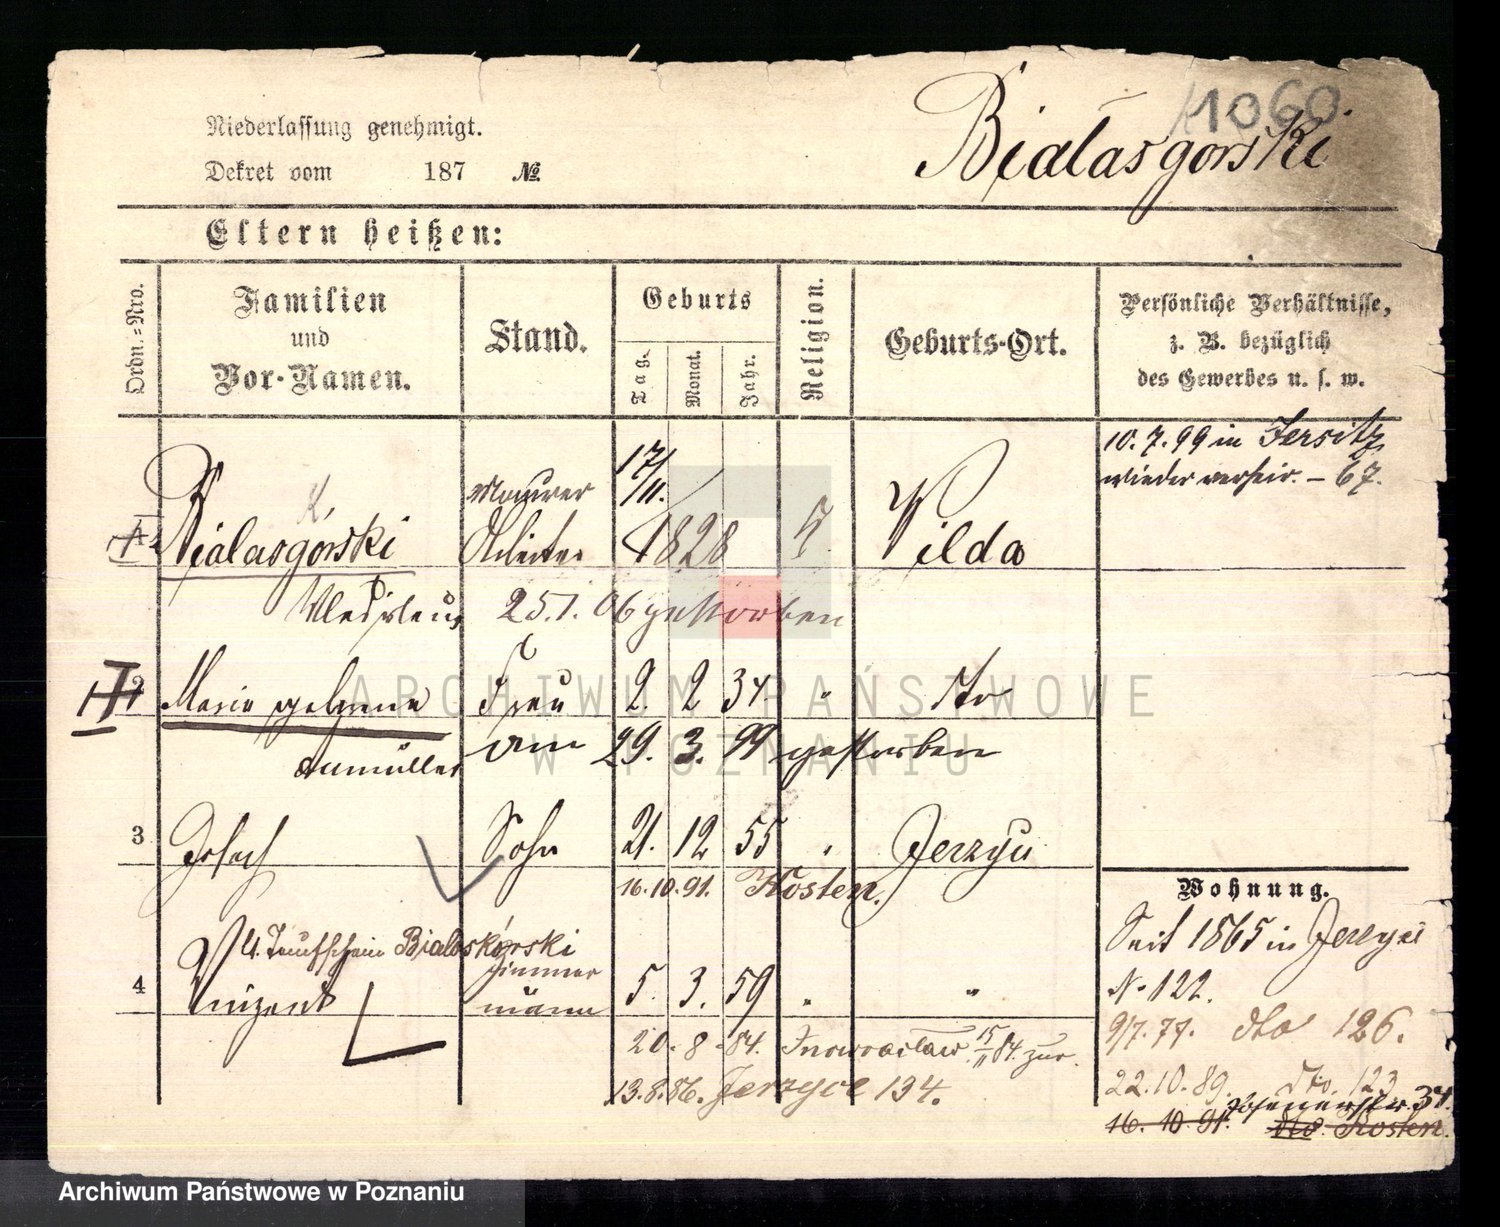 1060
Niederlassung genehmigt.
Bialasgorski
Dekret vom 187 №
Eltern heißen:
Ordn.-Nro.
Familien
und
Vor-Namen.
Stand.
Geburts
Tag.
Monat.
Jahr.
Religion.
Geburts-Ort.
Persönliche Verhältnisse,
z. B. bezüglich
des Gewerbes u. s. w.
10. 7. 99 in Jersitz
wieder verheir. – 67.
17/
/11.
Maurer
K.
1 Bialasgórski Arbeiter 1828 Wilda
25.1.06 gestorben
2 Marie Frau 2. 2 34 " dto
am 29. 3. 99 gestorben
3 Josef Sohn 21. 12 55 " Jerzyce
16.10.91. Kosten.
Wohnung.
lt. Taufschein Bialoskórski
Zimmer
4 Vinzent mann 5. 3. 59 " "
20. 8. 84. Inowraclaw. 15/11 84. zur.
13.8.86. Jerzyce 134.
Seit 1865 in Jerzyce
N. 122.
9/7. 77. dto 126.
22.10.89. dto. 123
34.
16. 10. 91. dto. Kosten.
ARCHIWUM PAŃSTWOWE
W POZNANIU
Archiwum Państwowe w Poznaniu